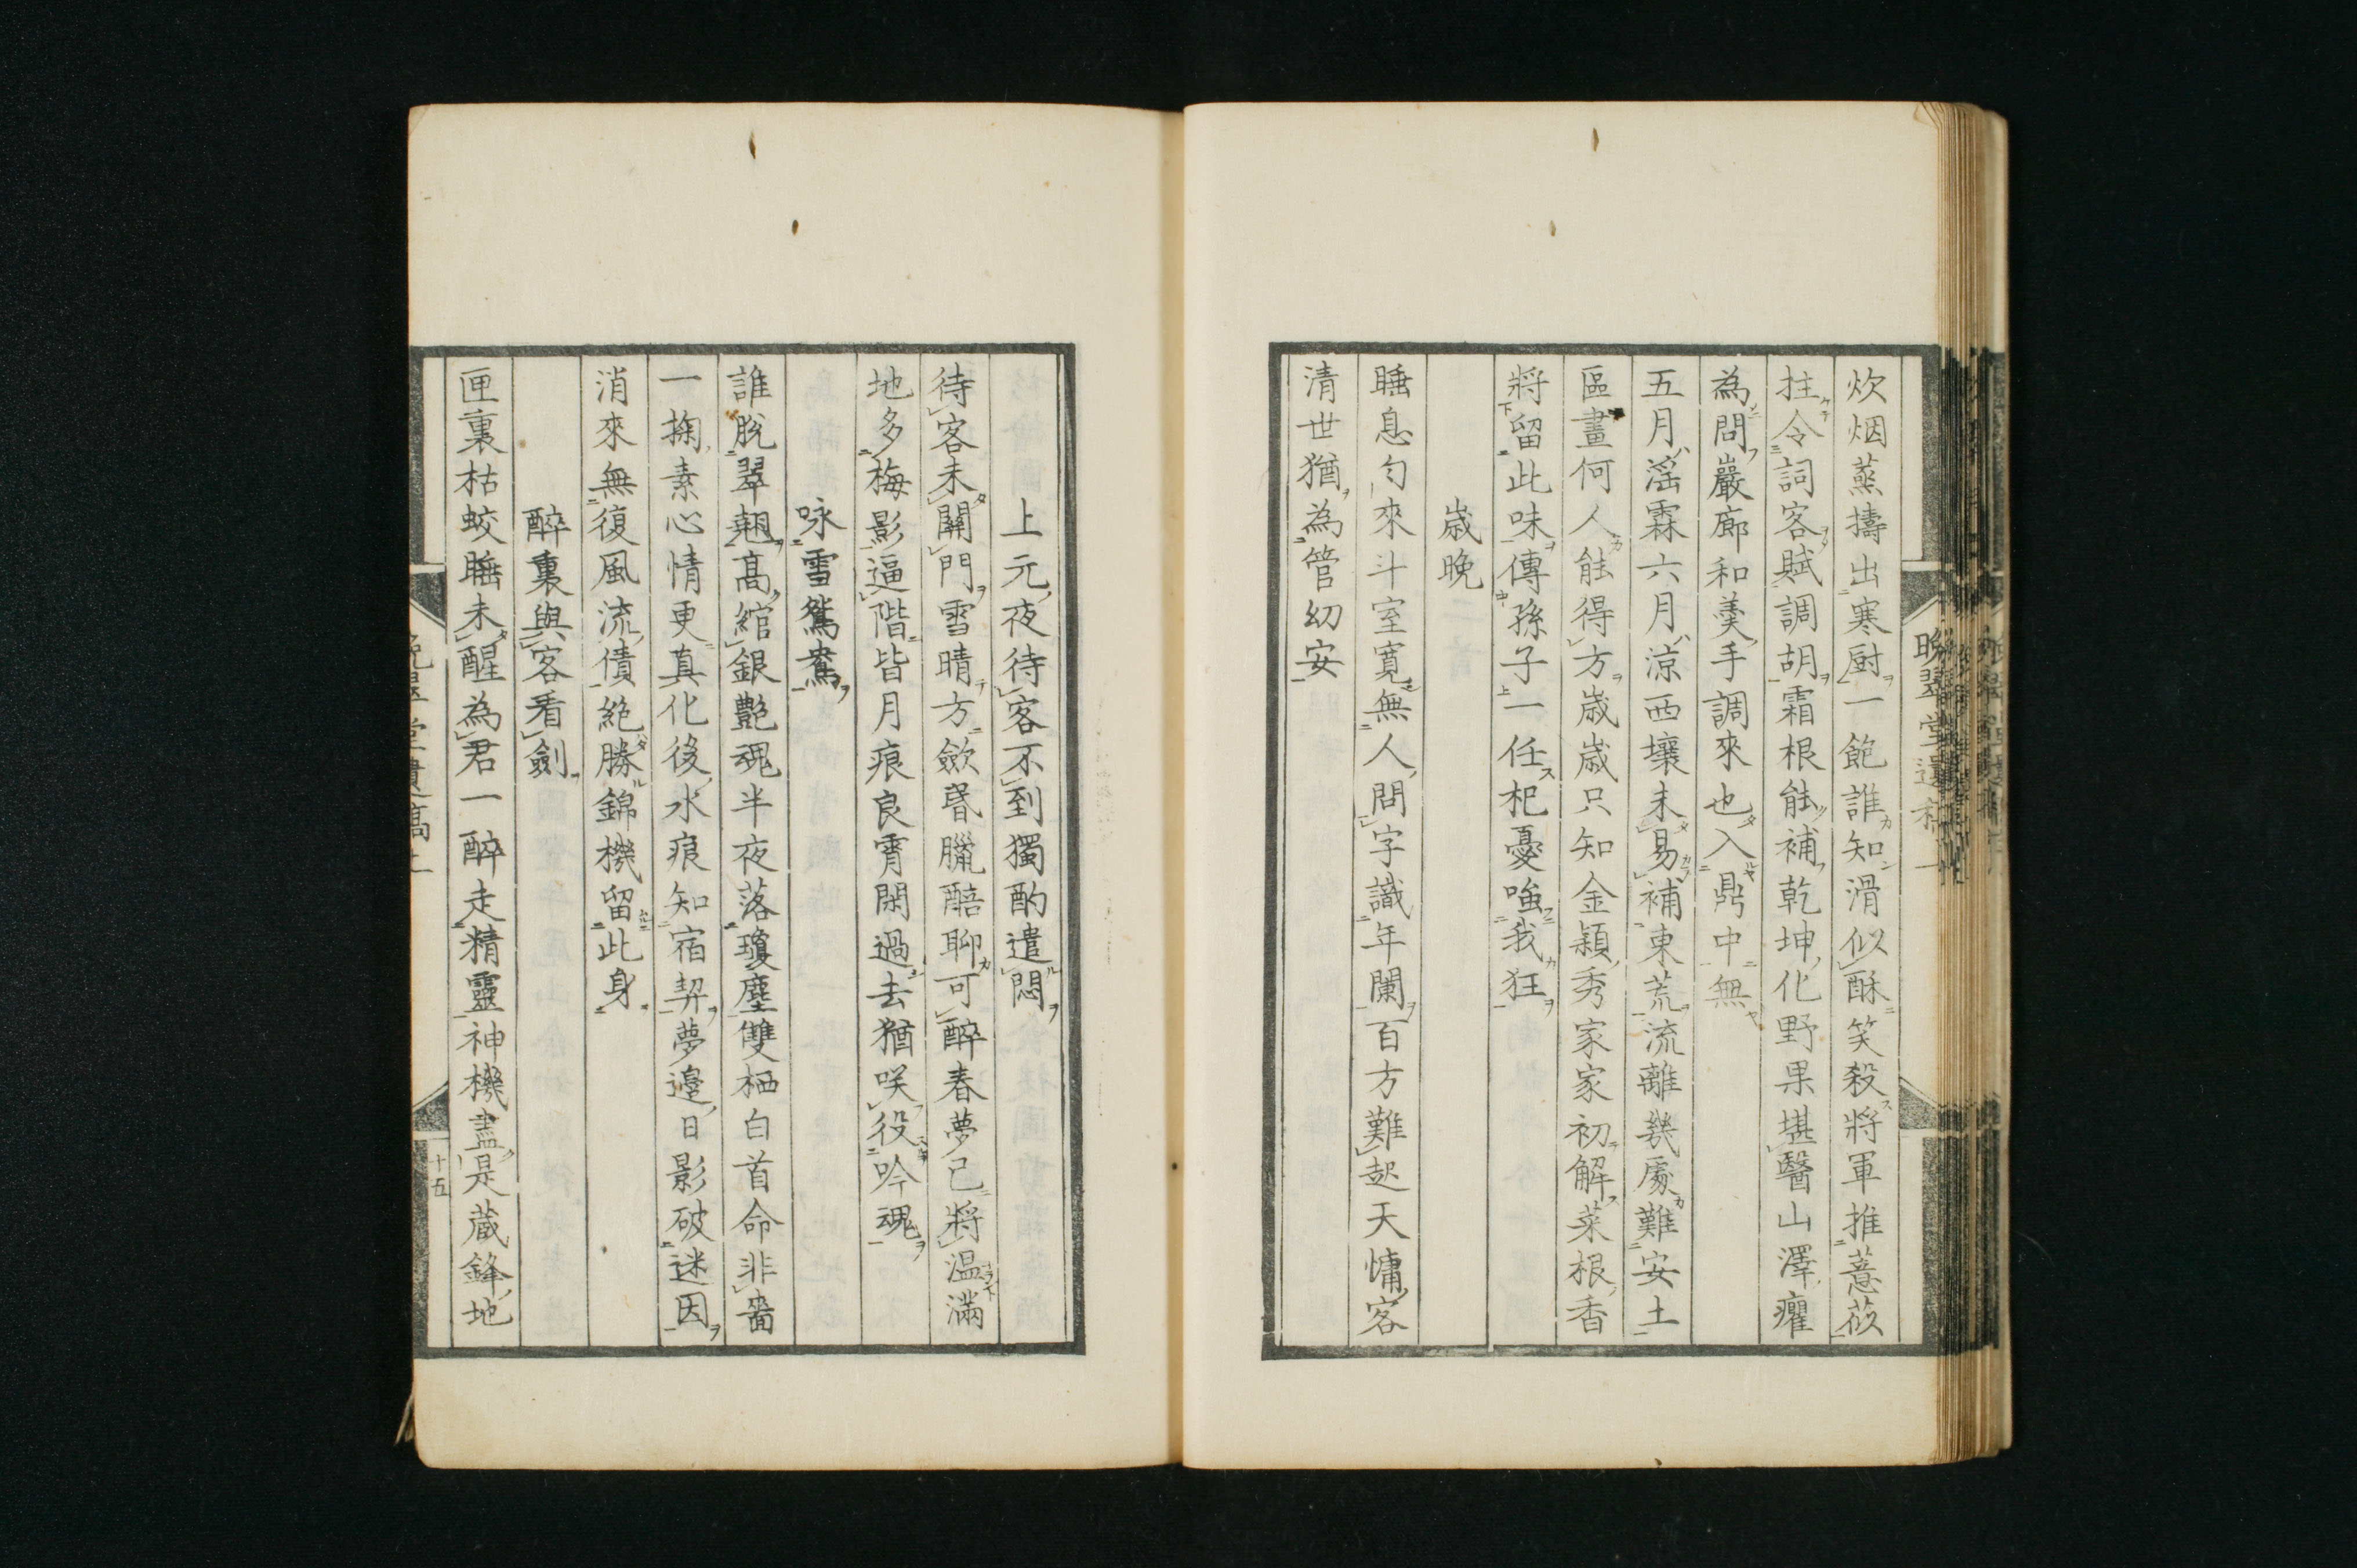 炊烟蒸擣出寒厨一飽誰知滑似酥笑殺將軍推薏苡
拄令詞客賦調胡霜根能補乾坤化野果堪醫山澤癯
為問巖廊和羹手調來也入鼎中無
五月滛霖六月涼西壤未易補東荒流離幾處難安土
區畫何人能得方歳歳只知金穎秀家家初解菜根香
將留此味傳孫子一任杞憂嗤我狂
歳晩
睡息勻來斗室寛無人問字識年闌百方難起天慵客
清世猶為管幼安
晩翠堂遺稿
上元夜待客不到獨酌遣悶
待客未關門雪晴方歛昬臘醅聊可醉春夢已將温滿
地多梅影逼階皆月痕良霄閑過去猶咲役吟魂
咏雪鴛鴦
誰脱翠翹髙綰銀艶魂半夜落瓊塵雙栖白首命非嗇
一掬素心情更真化後水痕知宿契夢邉日影破迷因
消來無復風流債絶勝錦機留此身
醉裏與客看劍
匣裏枯蛟睡未醒為君一醉走精靈神機盡是蔵鋒地
十五